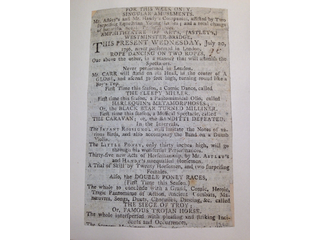 FOR THIS WEEK ONLY.
SINGULAR AMUSEMENTS.
Mr. Astley's and Mr. Handy's Companies, assisted by Two
Surprising Equestrians,
and a total change
AMPHITHEATRE OF ARTS, (ASTLEY'S)
WESTMINSTER-BRIDGE.
THIS PRESENT WEDNESDAY, July 22,
never performed in London,
ROPE DANCING ON TWO ROPES,
One above the other, in a manner that will astonish the
Spectators.
Never performed in London.
Mr. CARR will stand on his Head, in the center of A
GLOBE, and ascend 30 feet high, turning round like a
boy's Top.
First Time this Season, a Comic Dance, called
THE SLEEPY MILLER.
First time this Season, a Pantomimical Olio, called
HARLEQUIN'S METAMORPHOSES;
Or, the BLACK STAR TURNED MILLINER.
First time this season, a Musical spectacle, called
THE CARAVAN; or, the BANDITTI DEFEATED.
In the Intervals
The INFANT ROSSIGNOL will imitate the Notes of various Birds, and also accompany the Band on a
Violin.
The LITTLE PONEY, only thirty inches high, will go
through his wonderful Performances.
Thirty-five new acts of Horsemanship, by Mr. ASTLEY'S
and HANDY'S conjunctional Horsemen.
A Trial of Skill by Twenty Horsemen, and two surprising
Females.
Also, the DOUBLE PONEY RACES,
(First Time this Season)
The whole to conclude with a Grand, Comic, Heroic,
Tragic Pantomime of Action, Ancient Combats,
Songs, Duets, Chorusses, Dancing, &c. called
THE SIEGE OF TROY;
Or, FAMOUS TROJAN HORSE.
The whole interspersed with pleasing and striking
and Occurrences.